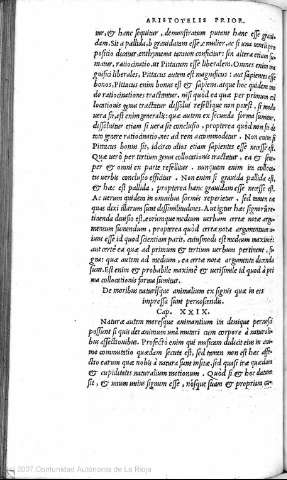 ARISTOTELIS PRIOR.
tur, & hanc sequitur, demonstratum putant hanc esse graui
dam. Sit a pallida. b grauidatum esse. c mulier. ac si una tantū pro
positio dicatur enthymema tantum conficitur: sin altera etiā su
matur, ratiocinatio. ut Pittacum esse liberalem. Omnes enim ma
gnifici liberales. Pittacus autem est magnificus: aut sapientes esse
bonos. Pittacus enim bonus est & sapiens. atque hoc quidem mo
do ratiocinationes tractantur. nisi quòd ea quæ per primum col
locationis genus tractatur dissolui refelliq́ue non potest, si modò
uera sit, est enim generalis: quæ autem ex secunda forma sumitur,
dissoluitur etiam si uera sit conclusio, propterea quòd non sit de
toto genere ratiocinatio, nec ad rem accommodetur. Non enim si
Pittacus bonus sit, idcirco alios etiam sapientes esse necesse est.
Quæ uerò per tertium genus collocationis tractatur, ea & sem-
per & omni ex parte refellitur. nunquam enim in colloca
tis uerbis conclusio efficitur. Non enim si grauida est pallida
est, & hæc est pallida, propterea hanc grauidam esse necesse est.
Ac uerum quidem in omnibus formis reperietur, sed tamen ea
quæ dixi illarum sunt dissimilitudines. Aut igitur hæc signa sic re
tinenda diuiso est, eorumque medium uerbum certæ notæ argu
mentum sumendum, propterea quòd certæ notæ argumentum a-
iunt esse id quod scientiam pariat. eiusmodi est medium maximè:
aut certè ea quæ ad primum & tertium uerbum pertinent, si-
gna: quæ autem ad medium, ea certæ notæ argumenti dicenda
sunt. Est enim & probabile maximè & uerisimile id quod à pri
ma collocationis forma sumitur.
De moribus naturísque animalium ex signis quæ in eis
impressa sunt pernoscendis.
Cap. XXIX.
Naturæ autem moresque animantium in denique perspici
possunt si quis det animum unà mutari cum corpore à naturali-
bus affectionibus. Profectò enim qui musicam didicit eius in ani
mo commutatio quædam facta est, sed tamen non est hæc affe-
ctio earum quæ nobis à natura sunt insitæ, sed quasi iræ quædam
& cupiditates naturalium motionum. Quòd si & hoc datum
sit, & unum unius signum esse, nosque suum & proprium cu-
2007 Comunidad Autónoma de La Rioja